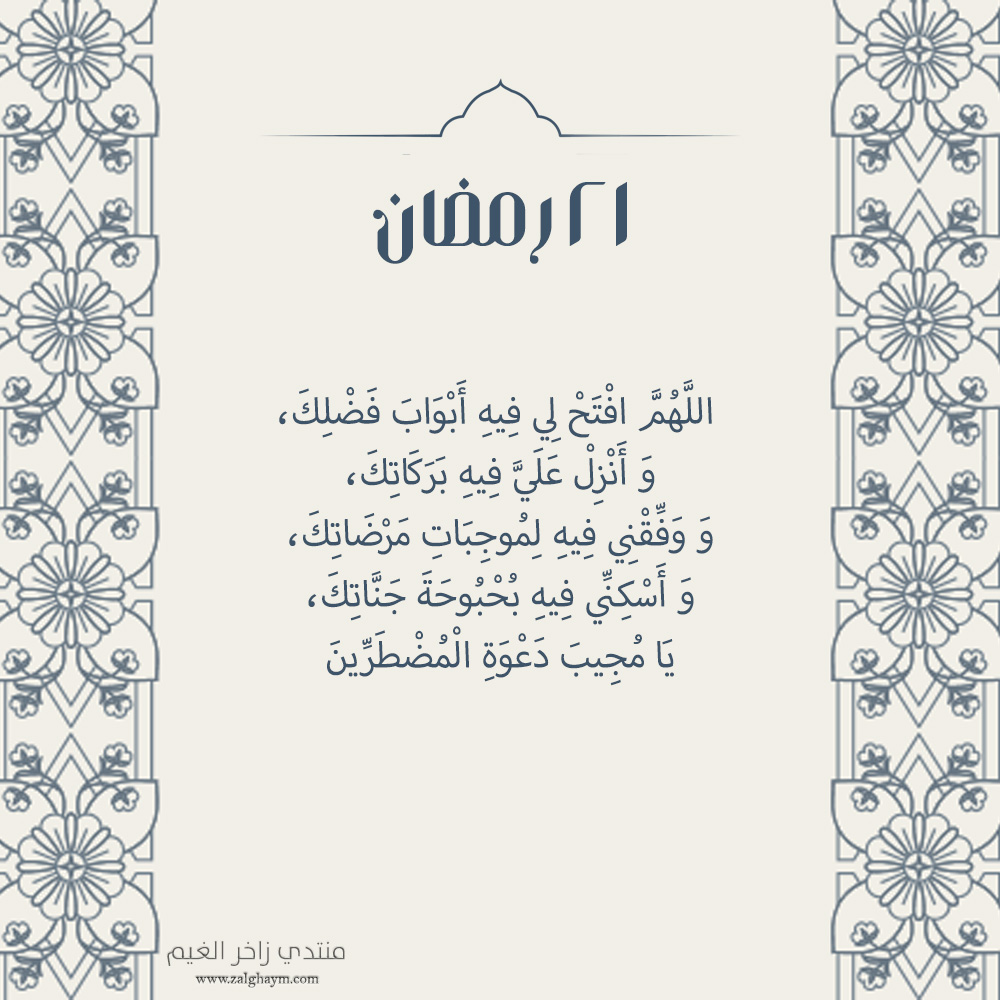 ٢١ رمضان
اللَّهُمَّ افْتَحْ لِي فِيهِ أَبْوَابَ فَضْلِكَ،
وَ أَنْزِلْ عَلَيَّ فِيهِ بَرَكَاتِكَ،
وَ وَفِّقْنِي فِيهِ لِمُوجِبَاتِ مَرْضَاتِكَ،
وَ أَسْكِنِّي فِيهِ بُحْبُوحَةَ جَنَّاتِكَ،
يَا مُجِيبَ دَعْوَةِ الْمُضْطَرِّينَ
منتدي زاخر الغيم
www.zalghaym.com